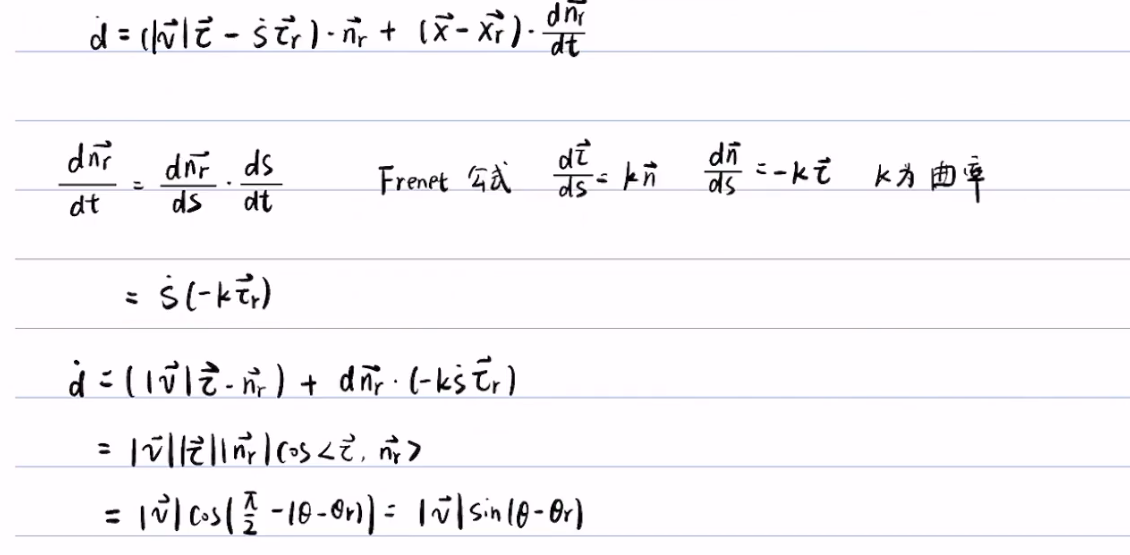 ḋ = (|v⃗|τ⃗ - ṡτ⃗ᵣ)·n⃗ᵣ + (x⃗ - x⃗ᵣ)·dn⃗ᵣ/dt
dn⃗ᵣ/dt = dn⃗ᵣ/ds · ds/dt Frenet 公式 dτ⃗/ds = kn⃗ dn⃗/ds = -kτ⃗ k为曲率
= ṡ(-kτ⃗ᵣ)
ḋ = (|v⃗|τ⃗·n⃗ᵣ) + dn⃗ᵣ·(-kṡτ⃗ᵣ)
= |v⃗||τ⃗||n⃗ᵣ|cos<τ⃗, n⃗ᵣ>
= |v⃗|cos(π/2 - (θ-θr)) = |v⃗|sin(θ-θr)